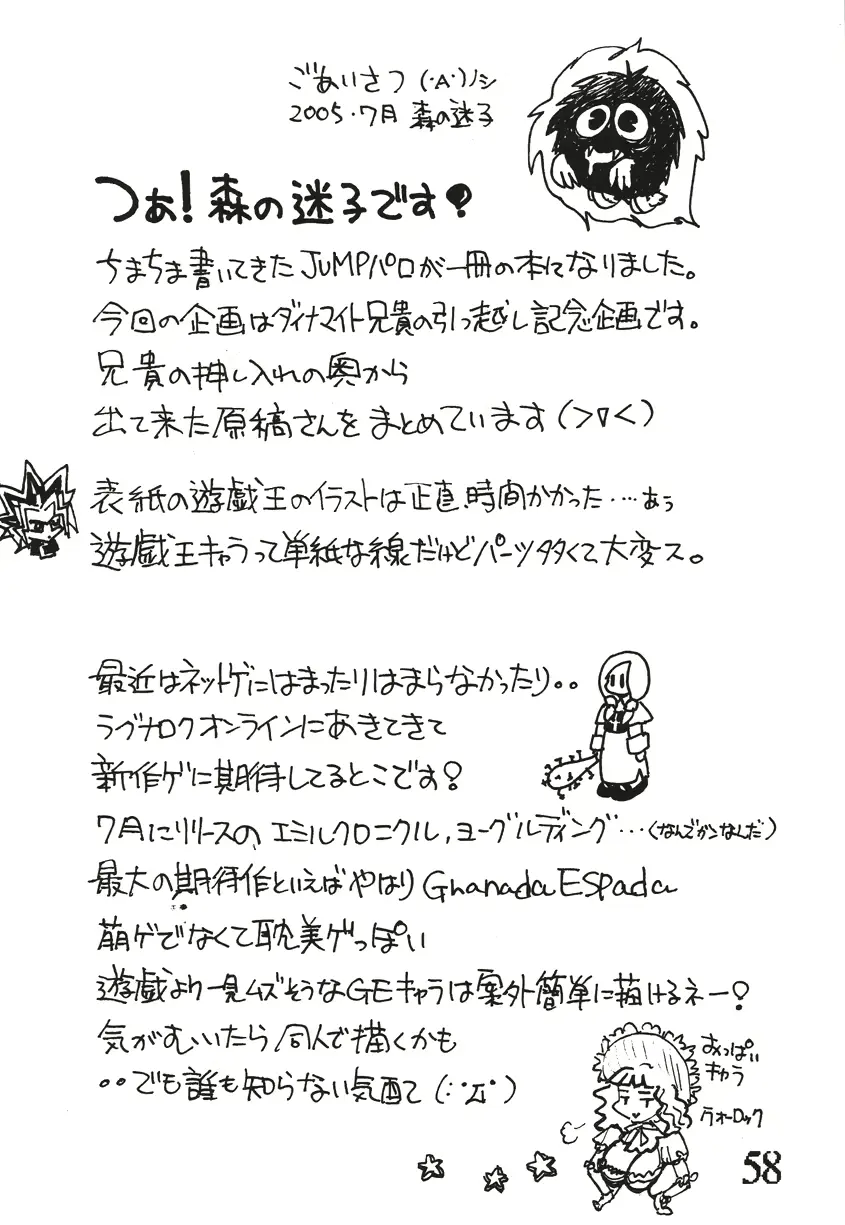 ごあいさつ (･A･)ノシ
2005・7月 森の迷子
つぁ!森の迷子です♪
ちまちま書いてきたJUMPパロが一冊の本になりました。
今回の企画はダイナマイト兄貴の引っ越し記念企画です。
兄貴の押し入れの奥から
出て来た原稿さんをまとめています(>▽<)
表紙の遊戯王のイラストは正直時間かかった・…ぁぅ
遊戯王キャラって単純な線だけどパーツ多くて大変ス。
最近はネットゲにはまったりはまらなかったり。。
ラグナロクオンラインにあきてきて
新作ゲに期待してるとこです♪
7月にリリースの、エミルクロニクル,ヨーグルディング…(なんでかんなんだ)
最大の期待作といえばやはりGranada ESpada
萌ゲでなくて耽美ゲっぽい
遊戯より一見ムズそうなGEキャラは案外簡単に描けるネー?
気がむいたら同人で描くかも
・・でも誰も知らない気配て(;ﾟДﾟ)
おっぱい
キャラ
ウォーロック
58